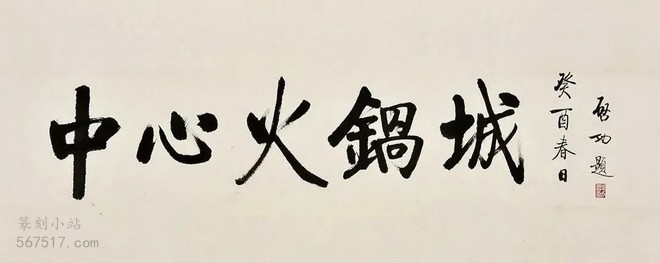 中心火鍋城
癸酉春日
啟功題
篆刻小站
567517.com